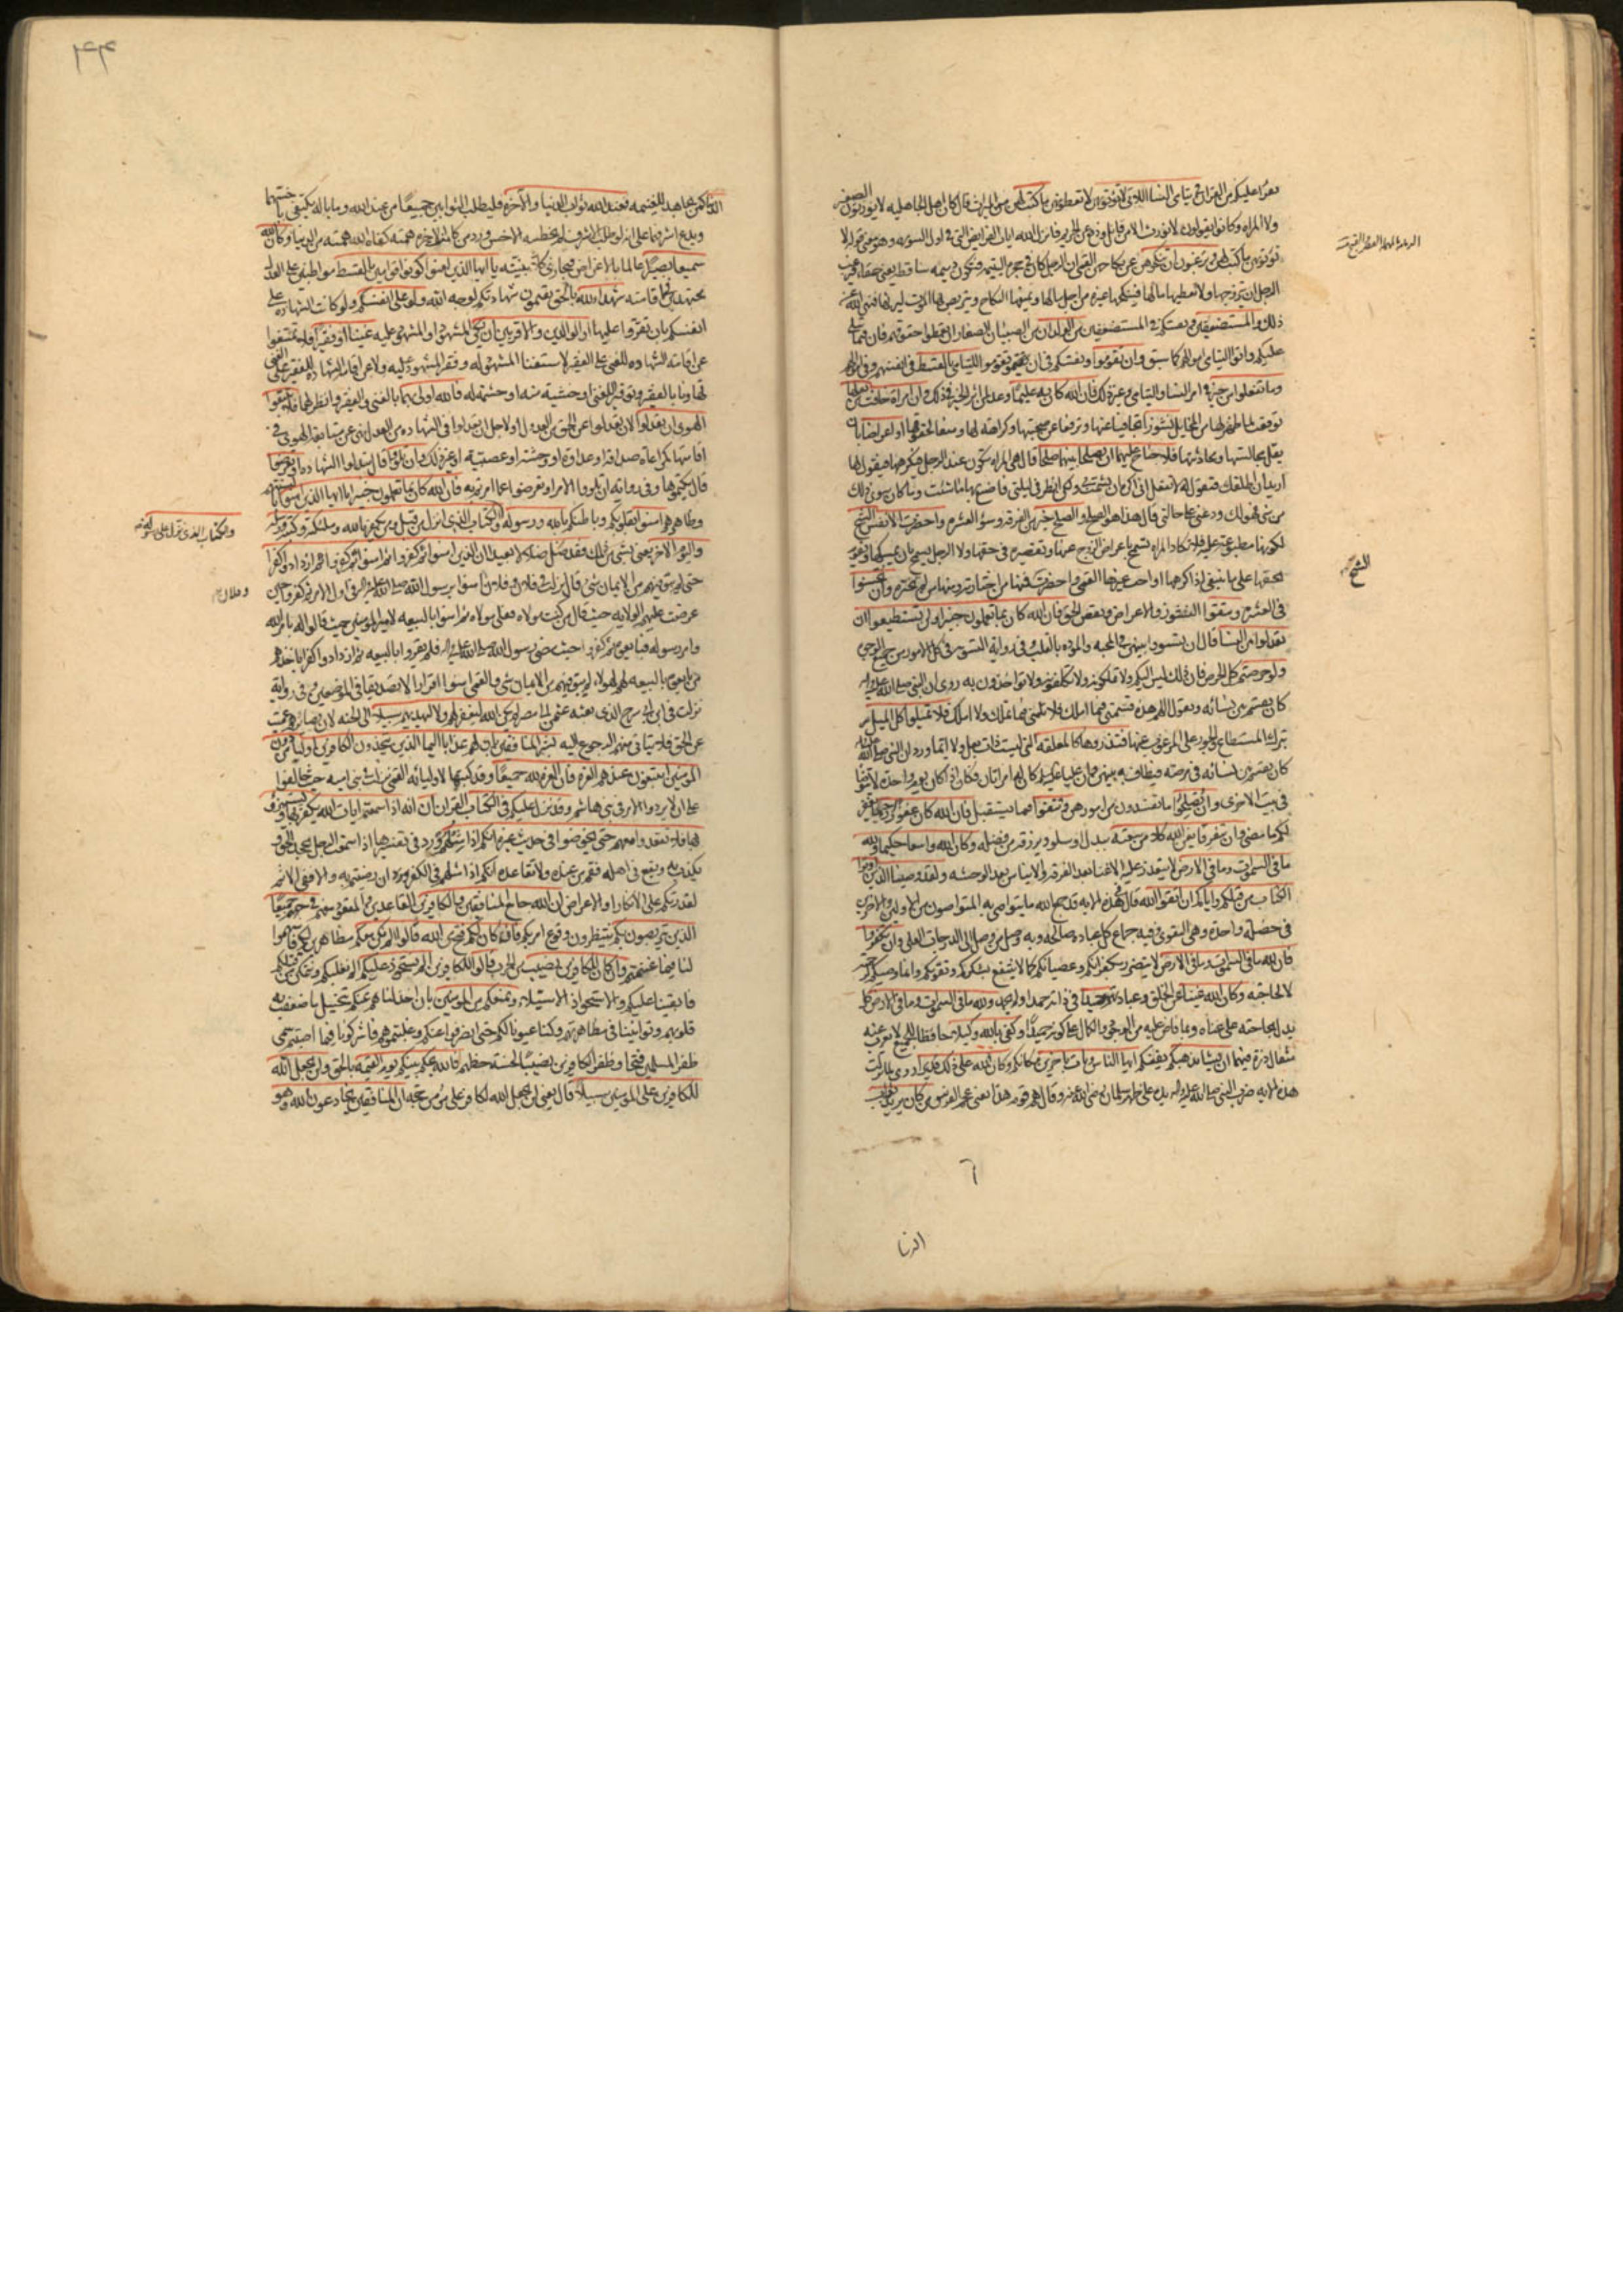 يقرأ عليكم من القران في يتامى النسا اللاتي لا تؤتونهن لا تعطونهن ما كتب لهن من الميراث قال كان اهل الجاهليه لا يورثون الصغير
ولا المراة وكانوا يقولون لا نورث الا من قاتل ودفع عن الحريم فانزل الله ايات الفرايض التي في اول السورة وهو معنى قوله لا
تؤتونهن ما كتب لهن وترغبون ان تنكحوهن عن نكاحهن القمي ان الرجل كان في حجره اليتيمة فتكون دميمة ساقطة يعني حمقاء فيرغب
الرجل ان يتزوجها ولا يعطيها مالها فينكحها غيره من اجل مالها ويمنعها النكاح ويتربص بها الموت ليرثها فنهى الله عن
ذلك والمستضعفين ويفتيكم في المستضعفين من الولدان من الصبيان الصغار ان تعطوا حقوقهم فان فيما يتلى
عليكم واتوا اليتامى اموالهم كما سبق وان تقوموا ويفتيكم في ان تقوموا لليتامى بالقسط في انفسهم وفي اموالهم
وما تفعلوا من خير في امر النسا واليتامى وغير ذلك فان الله كان به عليما وعد لمن اثر الخير في ذلك وان امراة خافت من بعلها
توقعت لما ظهر لها من المخايل نشوزا تجافيا عنها وترفعا عن صحبتها وكراهة لها ومنعا لحقوقها او اعراضا بان
يقل مجالستها ومحادثتها فلا جناح عليهما ان يصلحا بينهما صلحا قال هي المراة تكون عند الرجل فيكرهها فيقول لها
اريد ان اطلقك فتقول له لا تفعل اني اكره ان يشمت بي ولكن انظر في ليلتي فاصنع بها ما شئت وما كان سوى ذلك
من شي فهو لك ودعني على حالتي قال هذا هو الصلح والصلح خير من الفرقة وسوء العشرة واحضرت الانفس الشح
لكونها مطبوعة عليه فلا تكاد المراة تسمح باعراض الزوج عنها وتقصيره في حقها ولا الرجل يسمح بان يمسكها ويقوم
بحقها على ما ينبغي اذا كرهها او احب غيرها القمي واحضرت الانفس الشح فمنها من اختارته ومنها من لم تختره وان تحسنوا
في العشرة وتتقوا النشوز والاعراض ونقص الحق فان الله كان بما تعملون خبيرا ولن تستطيعوا ان
تعدلوا بين النسا قال ان تسووا بينهن في المحبة والمودة بالقلب وفي رواية التسوية في كل الامور من جميع الوجوه
ولو حرصتم كل الحرص فان ذلك ليس اليكم ولا تملكونه ولا تكلفونه ولا تؤاخذون به روي ان النبي صلى الله عليه واله
كان يقسم بين نسائه ويقول اللهم هذه قسمتي فيما املك فلا تلمني فيما تملك ولا املك فلا تميلوا كل الميل
بترك المستطاع والجور على المرغوب عنها فتذروها كالمعلقة التي ليست ذات بعل ولا ايما وروي ان النبي صلى الله عليه واله
كان يقسم بين نسائه في مرضه فيطاف به بينهن وان عليا عليه السلم كان له امراتان فكان اذا كان يوم واحدة لا يتوضا
في بيت الاخرى وان تصلحوا ما تفسدون من امورهن وتتقوا فيما يستقبل فان الله كان غفورا رحيما يغفر
لكم ما مضى وان يتفرقا يغن الله كلا من سعته ببدل او سلو ويرزقه من فضله وكان الله واسعا حكيما ولله
ما في السموات وما في الارض لا يتعذر عليه الاغنا بعد الفرقة والايناس بعد الوحشه ولقد وصينا الذين اوتوا
الكتاب من قبلكم واياكم ان اتقوا الله قال في هذه الاية قد جمع الله ما يتواصى به المتواصون من الاولين والاخرين
في خصلة واحدة وهي التقوى وفيه جماع كل عبادة صالحة وبه وصل من وصل الى الدرجات العلى وان تكفروا
فان لله ما في السموات وما في الارض لا يتضرر بكفرانكم وعصيانكم كما لا ينتفع بشكركم وتقويكم وانما وصيكم لرحمته
لا لحاجته وكان الله غنيا عن الخلق وعبادتهم حميدا في ذاته حمد او لم يحمد ولله ما في السموات وما في الارض كل
يدل بحاجته على غناه وبما فاض عليه من الوجود والكمال على كونه حميدا وكفى بالله وكيلا حافظا للجميع لا يعزب عنه
مثقال ذرة فيهما ان يشا يذهبكم يفنكم ايها الناس ويات باخرين مكانكم وكان الله على ذلك قديرا روي لما نزلت
هذه الاية ضرب النبي صلى الله عليه واله يده على ظهر سلمان رضي الله عنه وقال هم قوم هذا يعني عجم الفرس من كان يريد ثواب
الشح
الدنيا
الدنيا كمن يجاهد للغنيمة فعند الله ثواب الدنيا والاخرة فليطلب الثوابين جميعا من عند الله وما باله يكتفي باخسهما
ويدع اشرفهما على انه لو طلب الاشرف لم يخطئه الاخس وروي من كانت الاخرة همته كفاه الله همته من الدنيا وكان الله
سميعا بصيرا عالما بالاغراض فيجازي كلا بنيته يا ايها الذين امنوا كونوا قوامين بالقسط مواظبين على العدل
مجتهدين في اقامته شهداء لله بالحق تقيمون شهاداتكم لوجه الله ولو على انفسكم ولو كانت الشهادة على
انفسكم بان تقروا عليها او الوالدين والاقربين ان يكن المشهود او المشهود عليه غنيا او فقيرا فلا تمتنعوا
عن اقامة الشهادة للغني على الفقير لاستغنا المشهود له وفقر المشهود عليه ولا عن اقامة الشهادة للفقير على الغني
تهاونا بالفقير وتوقيرا للغني او خشية منه او حشمة له فالله اولى بهما بالغني والفقير وانظر لهما فلا تتبعوا
الهوى ان تعدلوا لان تعدلوا عن الحق من العدول او لاجل ان تعدلوا في الشهادة من العدل نهى عن متابعة الهوى في
اقامتها كمراعاة صداقة او عداوة او وحشة او عصبية او غير ذلك وان تلووا قال تبدلوا الشهادة او تعرضوا
قال تكتموها وفي رواية ان تلووا الامر او تعرضوا عما امرتم به فان الله كان بما تعملون خبيرا يا ايها الذين امنوا
وظاهرهم امنوا بقلوبكم وباطنكم بالله ورسوله والكتاب الذي انزل من قبل ومن يكفر بالله وملئكته وكتبه ورسله
واليوم الاخر يعني بشي من ذلك فقد ضل ضلالا بعيدا ان الذين امنوا ثم كفروا ثم امنوا ثم كفروا ثم ازدادوا كفرا
حتى لم يبق فيهم من الايمان شي قال نزلت في فلان وفلان امنوا برسول الله صلى الله عليه واله في اول الامر ثم كفروا حين
عرضت عليهم الولاية حيث قال من كنت مولاه فعلي مولاه ثم امنوا بالبيعة لامير المؤمنين حيث قالوا له بامر الله
وامر رسوله فبايعوه ثم كفروا حيث مضى رسول الله صلى الله عليه واله فلم يقروا بالبيعة ثم ازدادوا كفرا باخذهم
من بايعوه بالبيعة لهم فهولاء لم يبق فيهم من الايمان شي والقمي امنوا اقرارا لا تصديقا في الموضعين وفي رواية
نزلت في ابن ابي سرح الذي بعثه عثمن الى مصر لم يكن الله ليغفر لهم ولا ليهديهم سبيلا الى الجنة لان بصائرهم عميت
عن الحق فلا يتاتى منهم الرجوع اليه بشر المنافقين بان لهم عذابا اليما الذين يتخذون الكافرين اولياء من دون
المؤمنين ايبتغون عندهم العزة فان العزة لله جميعا وقد كتبها لاوليائه القمي نزلت في بني امية حيث خالفوا
على ان لا يردوا الامر في بني هاشم وقد نزل عليكم في الكتاب القران ان انه اذا سمعتم ايات الله يكفر بها ويستهزئ
بها فلا تقعدوا معهم حتى يخوضوا في حديث غيره انكم اذا مثلهم ورد في تفسيرها اذا سمعت الرجل يجحد الحق و
يكذب به ويقع في اهله فقم من عنده ولا تقاعده انكم اذا مثلهم في الكفر ان رضيتم به والا ففي الاثم
لقدرتكم على الانكار او الاعراض ان الله جامع المنافقين والكافرين القاعدين والمقعود معهم في جهنم جميعا
الذين يتربصون بكم ينتظرون وقوع امر بكم فان كان لكم فتح من الله قالوا الم نكن معكم مظاهرين لكم فاسهموا
لنا فيما غنمتم وان كان للكافرين نصيب من الحرب قالوا للكافرين الم نستحوذ عليكم الم نغلبكم ونتمكن من قتلكم
فابقينا عليكم والاستحواذ الاستيلاء ونمنعكم من المؤمنين بان خذلناهم عنكم بتخييل ما ضعفت به
قلوبهم وتوانينا في مظاهرتهم وكنا عيونا لكم حتى انصرفوا عنكم وغلبتموهم فاشركونا فيما اصبتم سمى
ظفر المسلمين فتحا وظفر الكافرين نصيبا لخسة حظهم فالله يحكم بينكم يوم القيمة بالحق ولن يجعل الله
للكافرين على المؤمنين سبيلا قال يعني لن يجعل الله لكافر على مؤمن حجة ان المنافقين يخادعون الله وهو
والكتاب الذي نزل على رسوله
وفلان